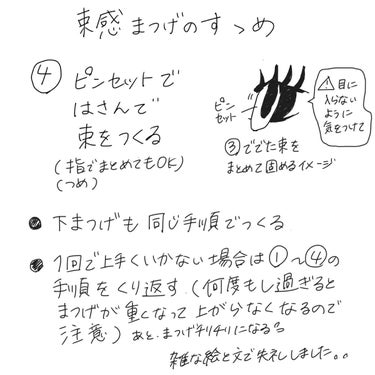 束感まつげのすゝめ
④ ピンセットで
はさんで
束をつくる
(指でまとめてもOK)
(つめ)
ピン
セット
⚠目に
入らない
ように
気をつけて
③でできた束を
まとめて固めるイメージ
● 下まつげも同じ手順でつくる
● 1回で上手くいかない場合は①〜④の
手順をくり返す(何度もし過ぎると
まつげが重くなって上がらなくなるので
注意)あと、まつげギチギチになる
雑な絵と文で失礼しました。。